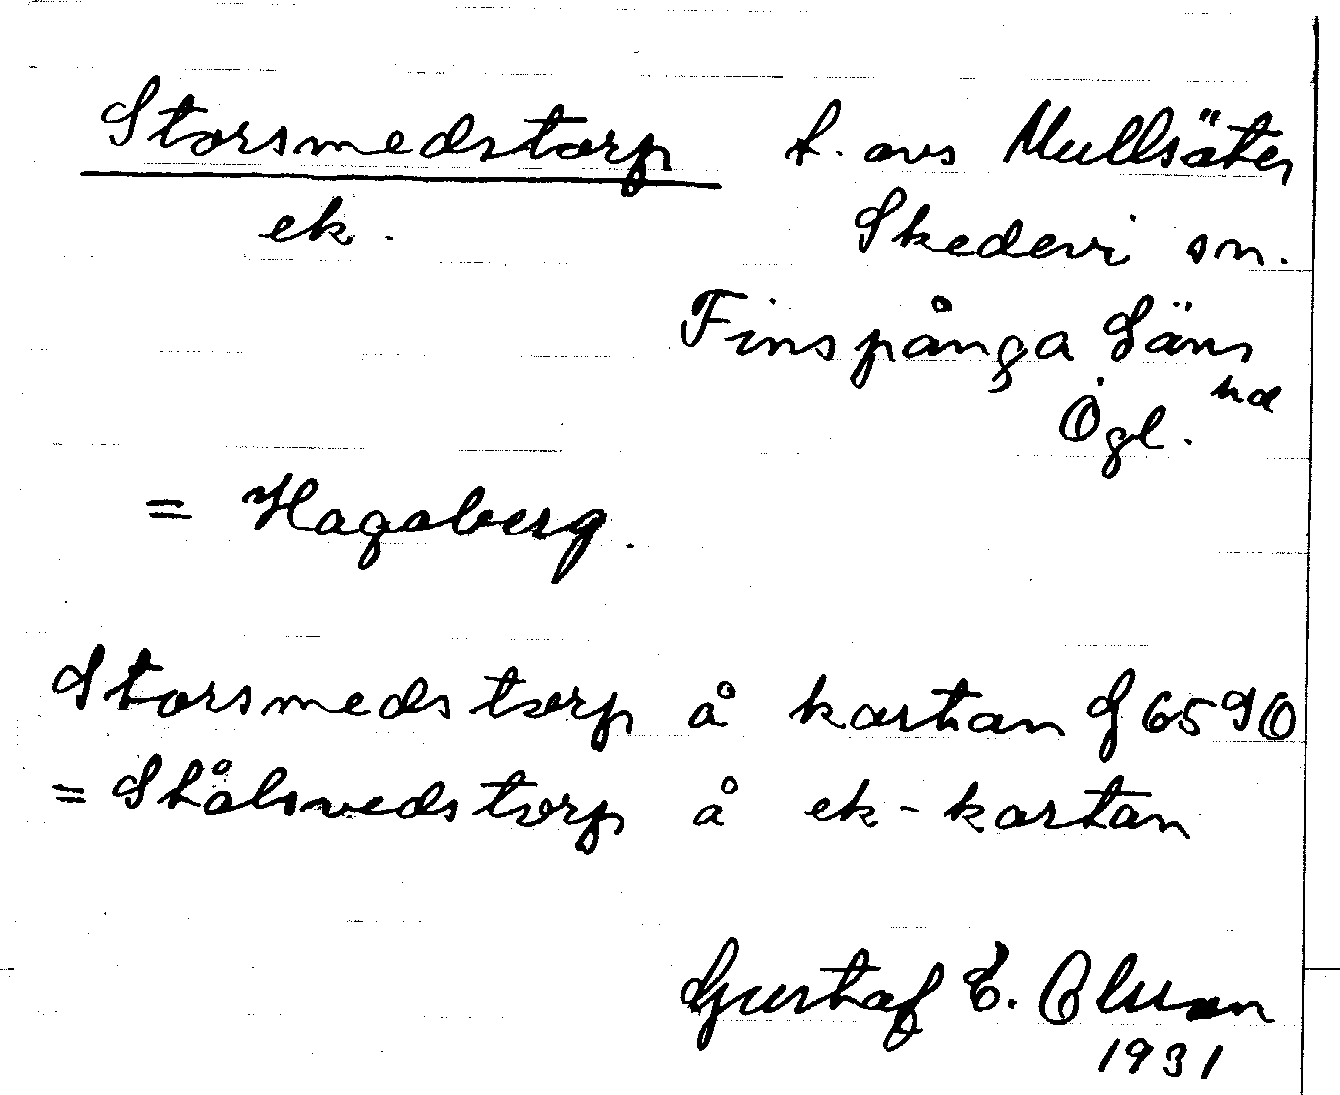 Storsmedstorp t. avs Mullsäter
ek. Skedevi sn.
Finspånga Läns
hd
Ögl.
= Hagaberg.
Storsmedstorp å kartan J 6590
= Stålsvedstorp å ek-kartan
Gustaf E. Olsson
1931